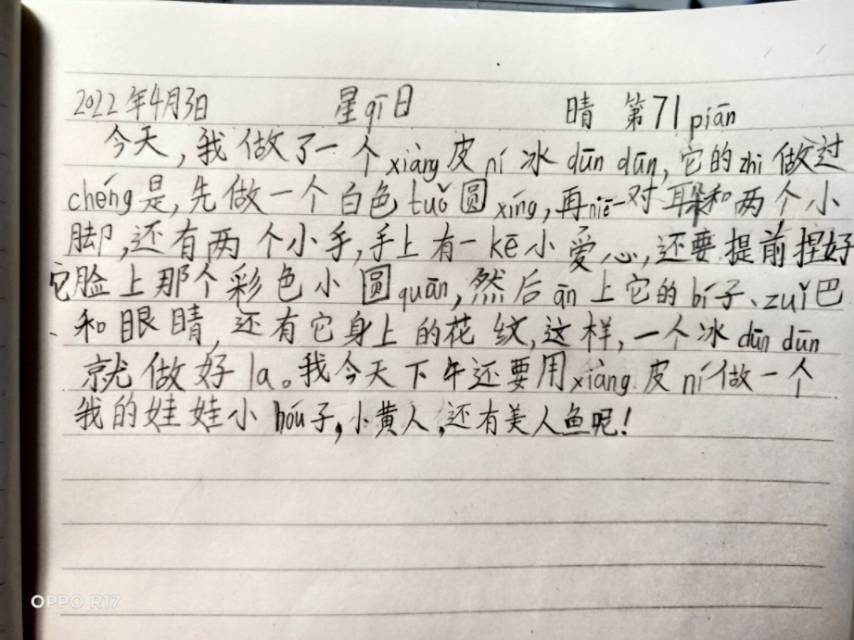 2022年4月3日 星qī日 晴 第71piān
今天,我做了一个xiàng皮ní冰dūn dūn,它的zhì做过
chéng是,先做一个白色tuǒ圆xíng,再niē一对耳朵和两个小
脚,还有两个小手,手上有一kē小爱心,还要提前捏好
它脸上那个彩色小圆quān,然后ān上它的bí子、zuǐ巴
和眼睛,还有它身上的花纹,这样,一个冰dūn dūn
就做好la。我今天下午还要用xiàng皮ní做一个
我的娃娃小hóu子,小黄人,还有美人鱼呢!
OPPO R17